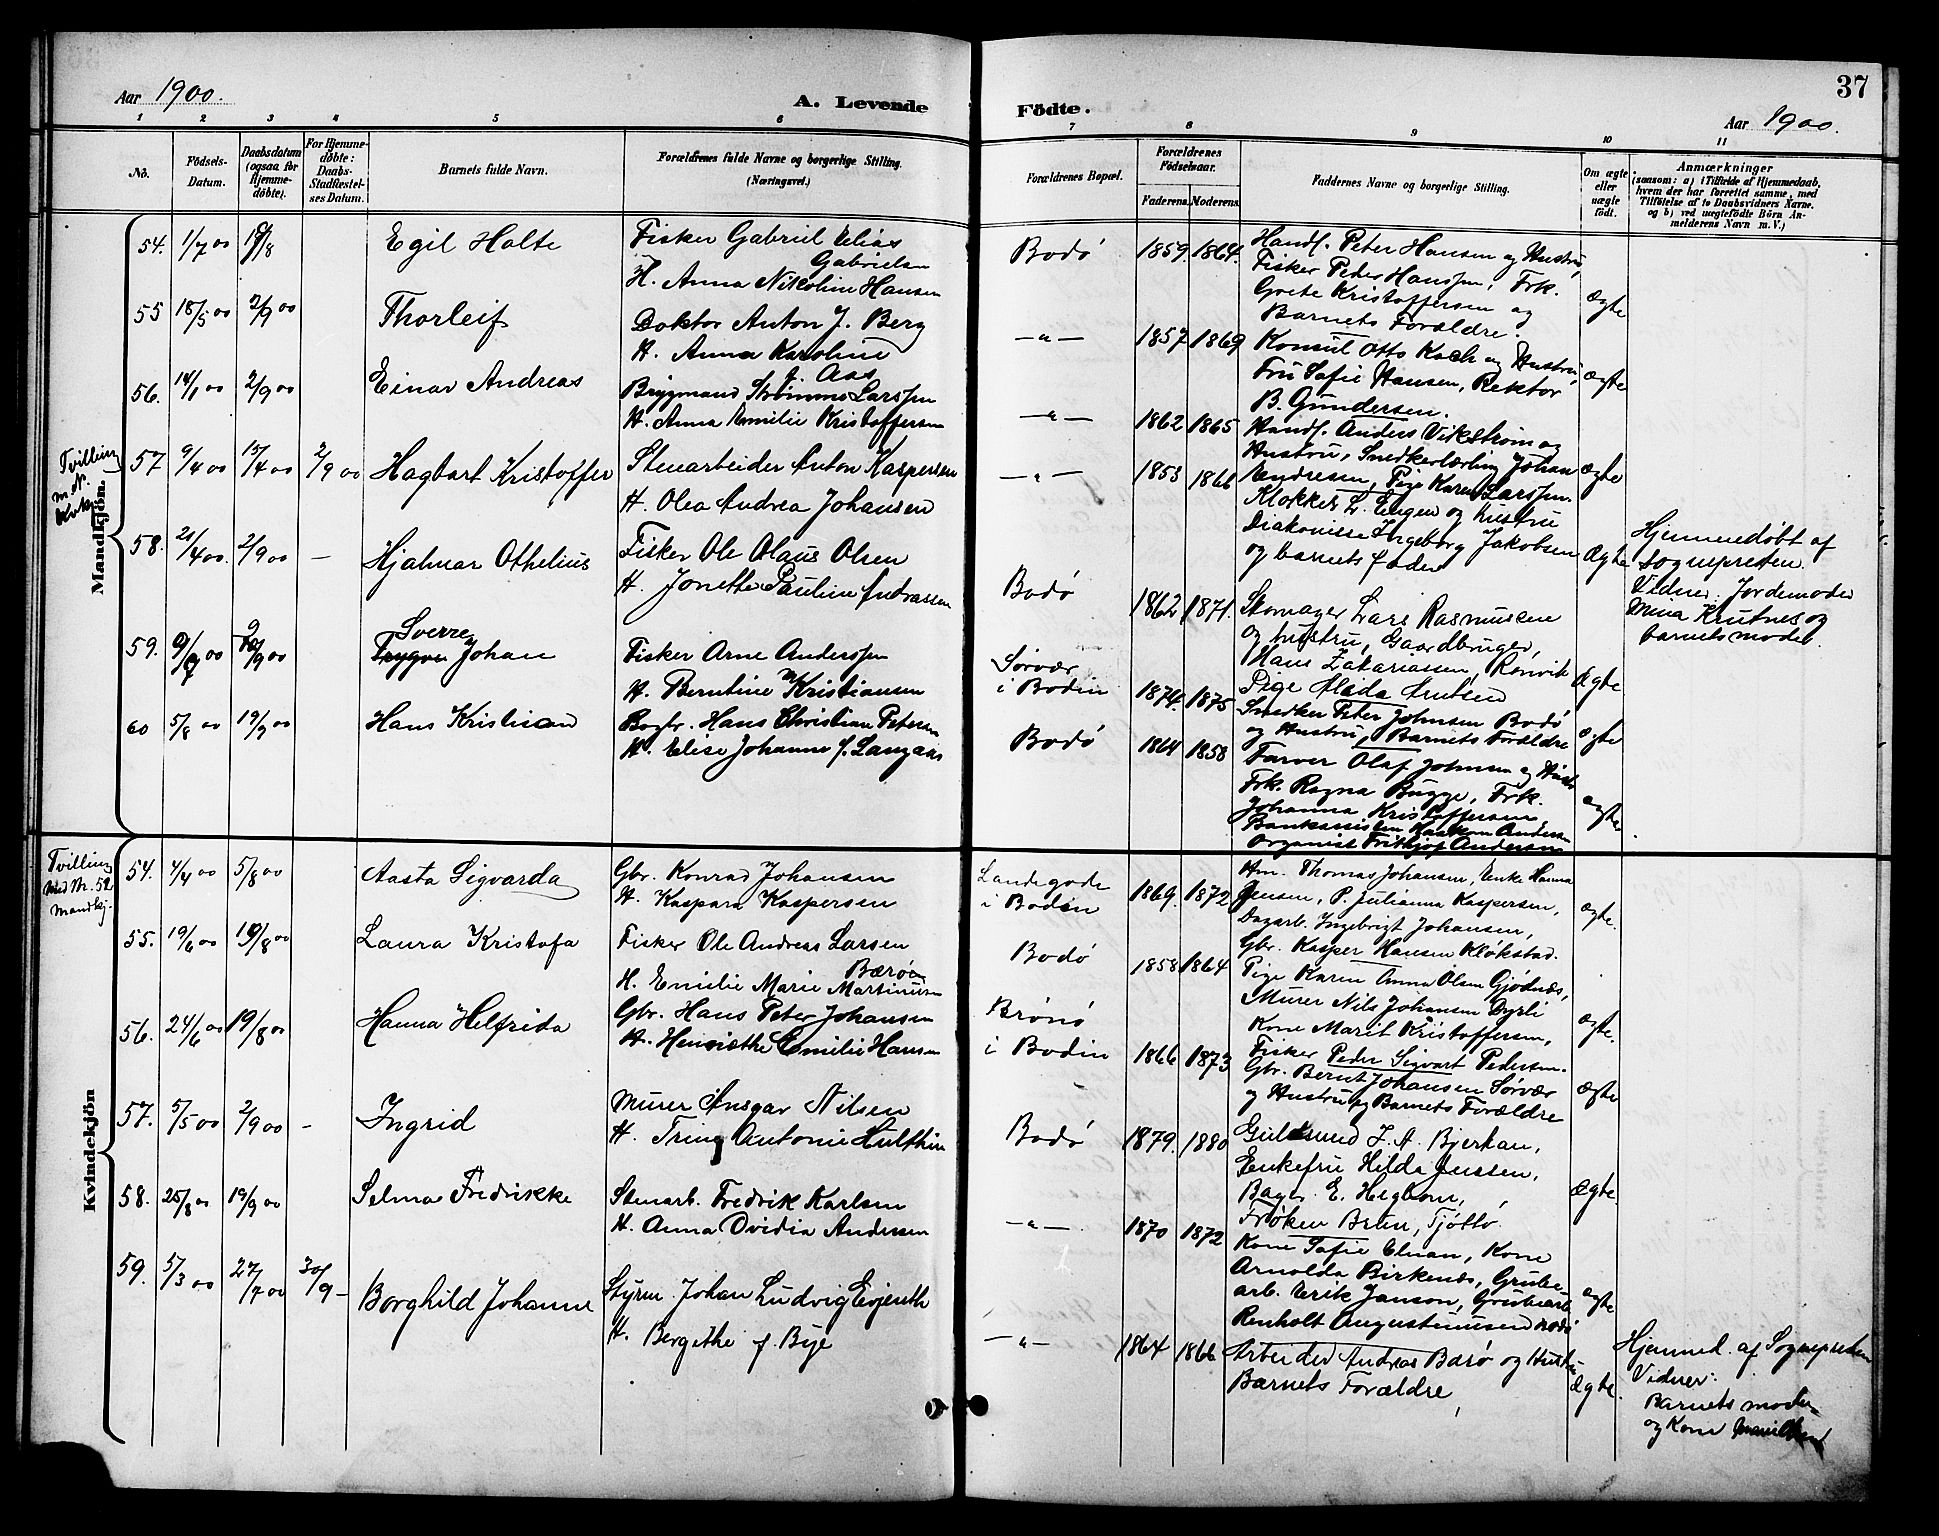 Aar 1900.
A. Levende
1 2 3 4 5 6
No.
Födsels-
Datum.
Daabsdatum
(ogsaa for
Hjemme-
døbte).
For Hjemme-
døbte:
Daabs-
Stadfæstel-
ses Datum.
Barnets fulde Navn.
Forældrenes fulde Navne og borgerlige Stilling.
(Næringsvei.)
Mandkjön.
54. 1/7 00 19/8 Egil Holte Fisker Gabriel Elias
Gabrielsen
H. Anna Nikoline Hansen
55 18/5 00 2/9 00 Thorleif Doktor Anton J. Berg
H. Anna Karoline
f. Aas
56. 2/9 00 Einar Andreas Brygmand Larssen
H. Anna Emilie Kristoffersen
Tvilling
m. N.
57 9/4 00 2/9 00 Hagbart Kristoffer Stuearbeider Anton Kaspersen
H. Olea Andrea Johansen
58. 2/9 00 - Hjalmar Othelius Fisker Ole Olaus Olsen
H. Jonette Pauline Andreassen
Sverre
59. 9/9 00 Trygve Johan Fisker Arne Anderssen
H. Berntine Kristiansen
60 5/8 00 Hans Kristian Bogbr. Hans Christian Petersen
H. Elise Johanne f. Langaas
Kvindekjön
Tvilling
med Nr. 52
Mandkj.
54. 4/4 00 5/8 00 Aasta Sigvarda Gbr. Konrad Johansen
H. Kaspara Kaspersen
55. 19/6 00 19/8 00 Laura Kristofa Fisker Ole Andreas Larsen
Bærøen
H. Emilie Marie Martinusen
56. 24/6 00 19/8 00 Hanna Helfrida Gbr. Hans Peter Johansen
H. Henriethe Emilie Hansen
57. 5/5 00 2/9 00 - Ingrid Murer Ansgar Nilsen
H. Trine Antonie Hulthin
58. 25/8 00 19/9 00 Selma Fredrikke Stenarb. Fredrik Karlsen
H. Anna Ovidia Andersen
59. 5/3 00 27/7 00 30/9 - Borghild Johanne Styrm. Johan Ludvig Evjenth
H. Bergithe f. Bye
37
Födte.
Aar 1900.
7 8 9 10 11
Forældrenes Bopæl.
Forældrenes
Födselsaar.
Faderens. Moderens.
Faddernes Navne og borgerlige Stilling.
Om ægte
eller
uægte
födt.
Anmærkninger
(saasom: a) i Tilfælde af Hjemmedaab,
hvem der har forrettet samme, med
Tilföielse af to Daabsvidners Navne.
og b) ved uegtefödte Börn An-
melderens Navn m. V.)
Bodø 1859. 1864. Handl. Peter Hansen og Hustru,
Fisker Peder Hanssen, Frk.
Grete Kristoffersen og
Barnets Forældre. Ægte
-"- 1857 1869 Konsul Otto Koch og Hustru,
Fru Sofie Hansen, Rektor
B. Gundersen. ægte
-"- 1862 1865 Handl. Anders Vikstrøm og
Hustru, Snedkerlærling Johan
Andresen, Pige Karen Larssen. ægte
-"- 1853 1866 Klokker L. Engen og Hustru
Diakonisse Ingeborg Jakobsen
og barnets fader Ægte
Hjemmedøbt af
sognepresten.
Vidner: Jordemoder
Mina Krutnes og
barnets moder.
Bodø 1862 1871. Skomager Lars Rasmussen
og hustru, Gaardbruger,
Hans Zakariassen, Rønvik
Pige Alida Knutsen Ægte
Sørvær
i Bodin 1874. 1875 Snedker Peter Johnsen Bodø
og Hustru, Barnets Forældre ægte
Bodø 1864 1858 Farver Olaf Johnsen og Hustru
Frk. Ragna Bugge, Frk.
Johanna Kristoffersen
Bankassistent Haakon Andersen
Organist Frithjof Andersen ægte
Landegode
i Bodin 1869. 1872 Hm. Thomas Johansen, Enke Hanna
Jensen, P. Julianna Kaspersen,
Dagarb. Ingebrigt Johansen,
Gbr. Kasper Hansen Kløkstad. ægte.
Bodø 1858 1864 Pige Karen Anna Olsen Gjødnæs,
Murer Nils Johansen Dyrli
Kone Marit Kristoffersen,
Fisker Peder Sigvart Pedersen. ægte.
Brønø
i Bodin 1866 1873 Gbr. Bernt Johansen Sørvær
og Hustru, Barnets Forældre ægte
Bodø 1879. 1880 Guldsmed J. A. Bjerkan,
Enkefru Hilda Jenssen,
Bager E. Hegbom,
Frøken Brun, Tjøttø. Ægte.
-"- 1870 1872 Kone Sofie Elvan, Kone
Arnolda Birkenæs, Grube-
arb. Erik Janson, Grubearb.
Renholt Augustinussen Bodø ægte
-"- 1864 1866 Arbeider Andreas Barø og Hustru
Barnets Forældre, Ægte.
Hjemmed. af Sognepresten
Vidner:
Barnets moder
og Kone